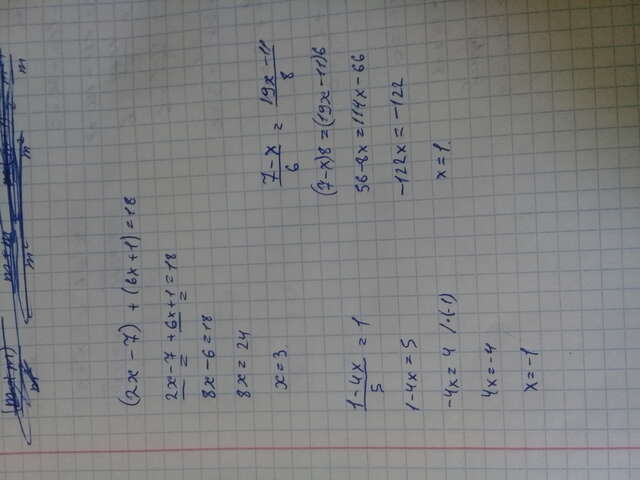 (2x - 7) + (6x + 1) = 18
2x - 7 + 6x + 1 = 18
8x - 6 = 18
8x = 24
x = 3
(1 - 4x)/5 = 1
1 - 4x = 5
-4x = 4 /·(-1)
4x = -4
x = -1
(7 - x)/6 = (19x - 11)/8
(7 - x)8 = (19x - 11)6
56 - 8x = 114x - 66
-122x = -122
x = 1.